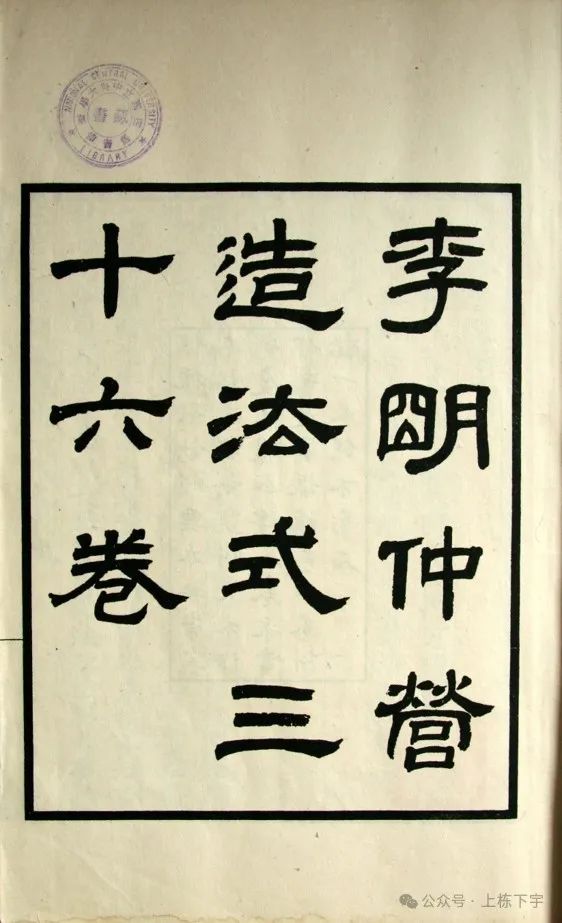 李明仲營
造法式三
十六卷
NATIONAL CENTRAL UNIVERSITY
LIBRARY
公众号·上栋下宇